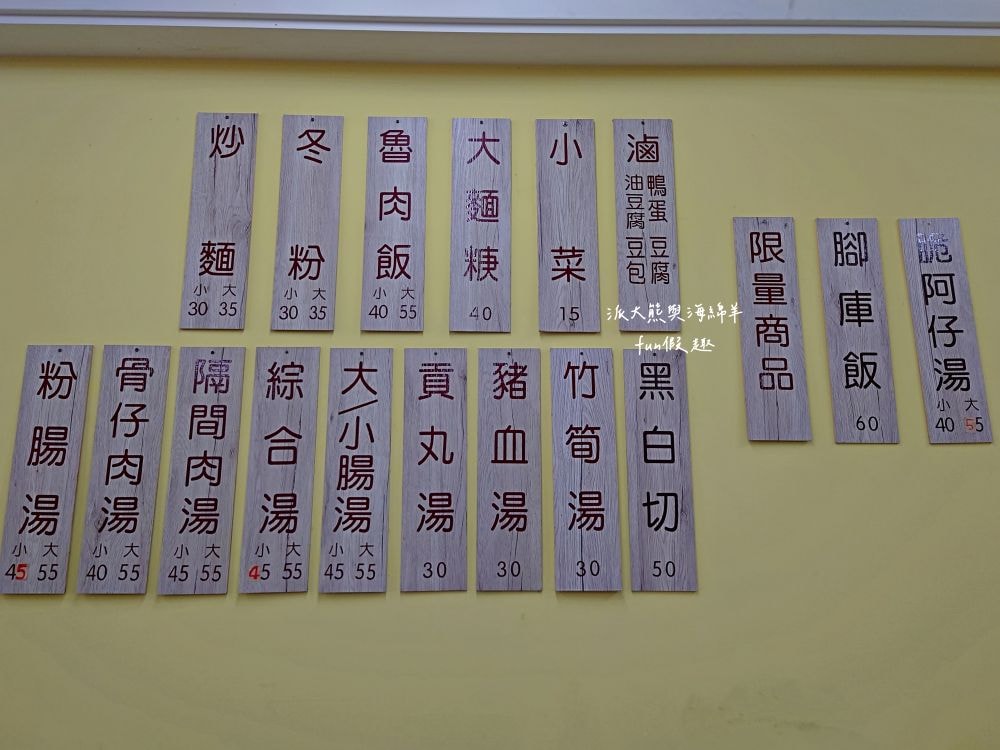 炒麵
小 大
30 35
冬粉
小 大
30 35
魯肉飯
小 大
40 55
大麵糖
40
小菜
15
滷
鴨蛋 豆腐
油豆腐 豆包
限量商品
腳庫飯
60
脆阿仔湯
小 大
40 55
粉腸湯
小 大
45 55
骨仔肉湯
小 大
40 55
隔間肉湯
小 大
45 55
綜合湯
小 大
45 55
大/小腸湯
小 大
45 55
貢丸湯
30
豬血湯
30
竹筍湯
30
黑白切
50
派大熊與海綿羊
fun假趣